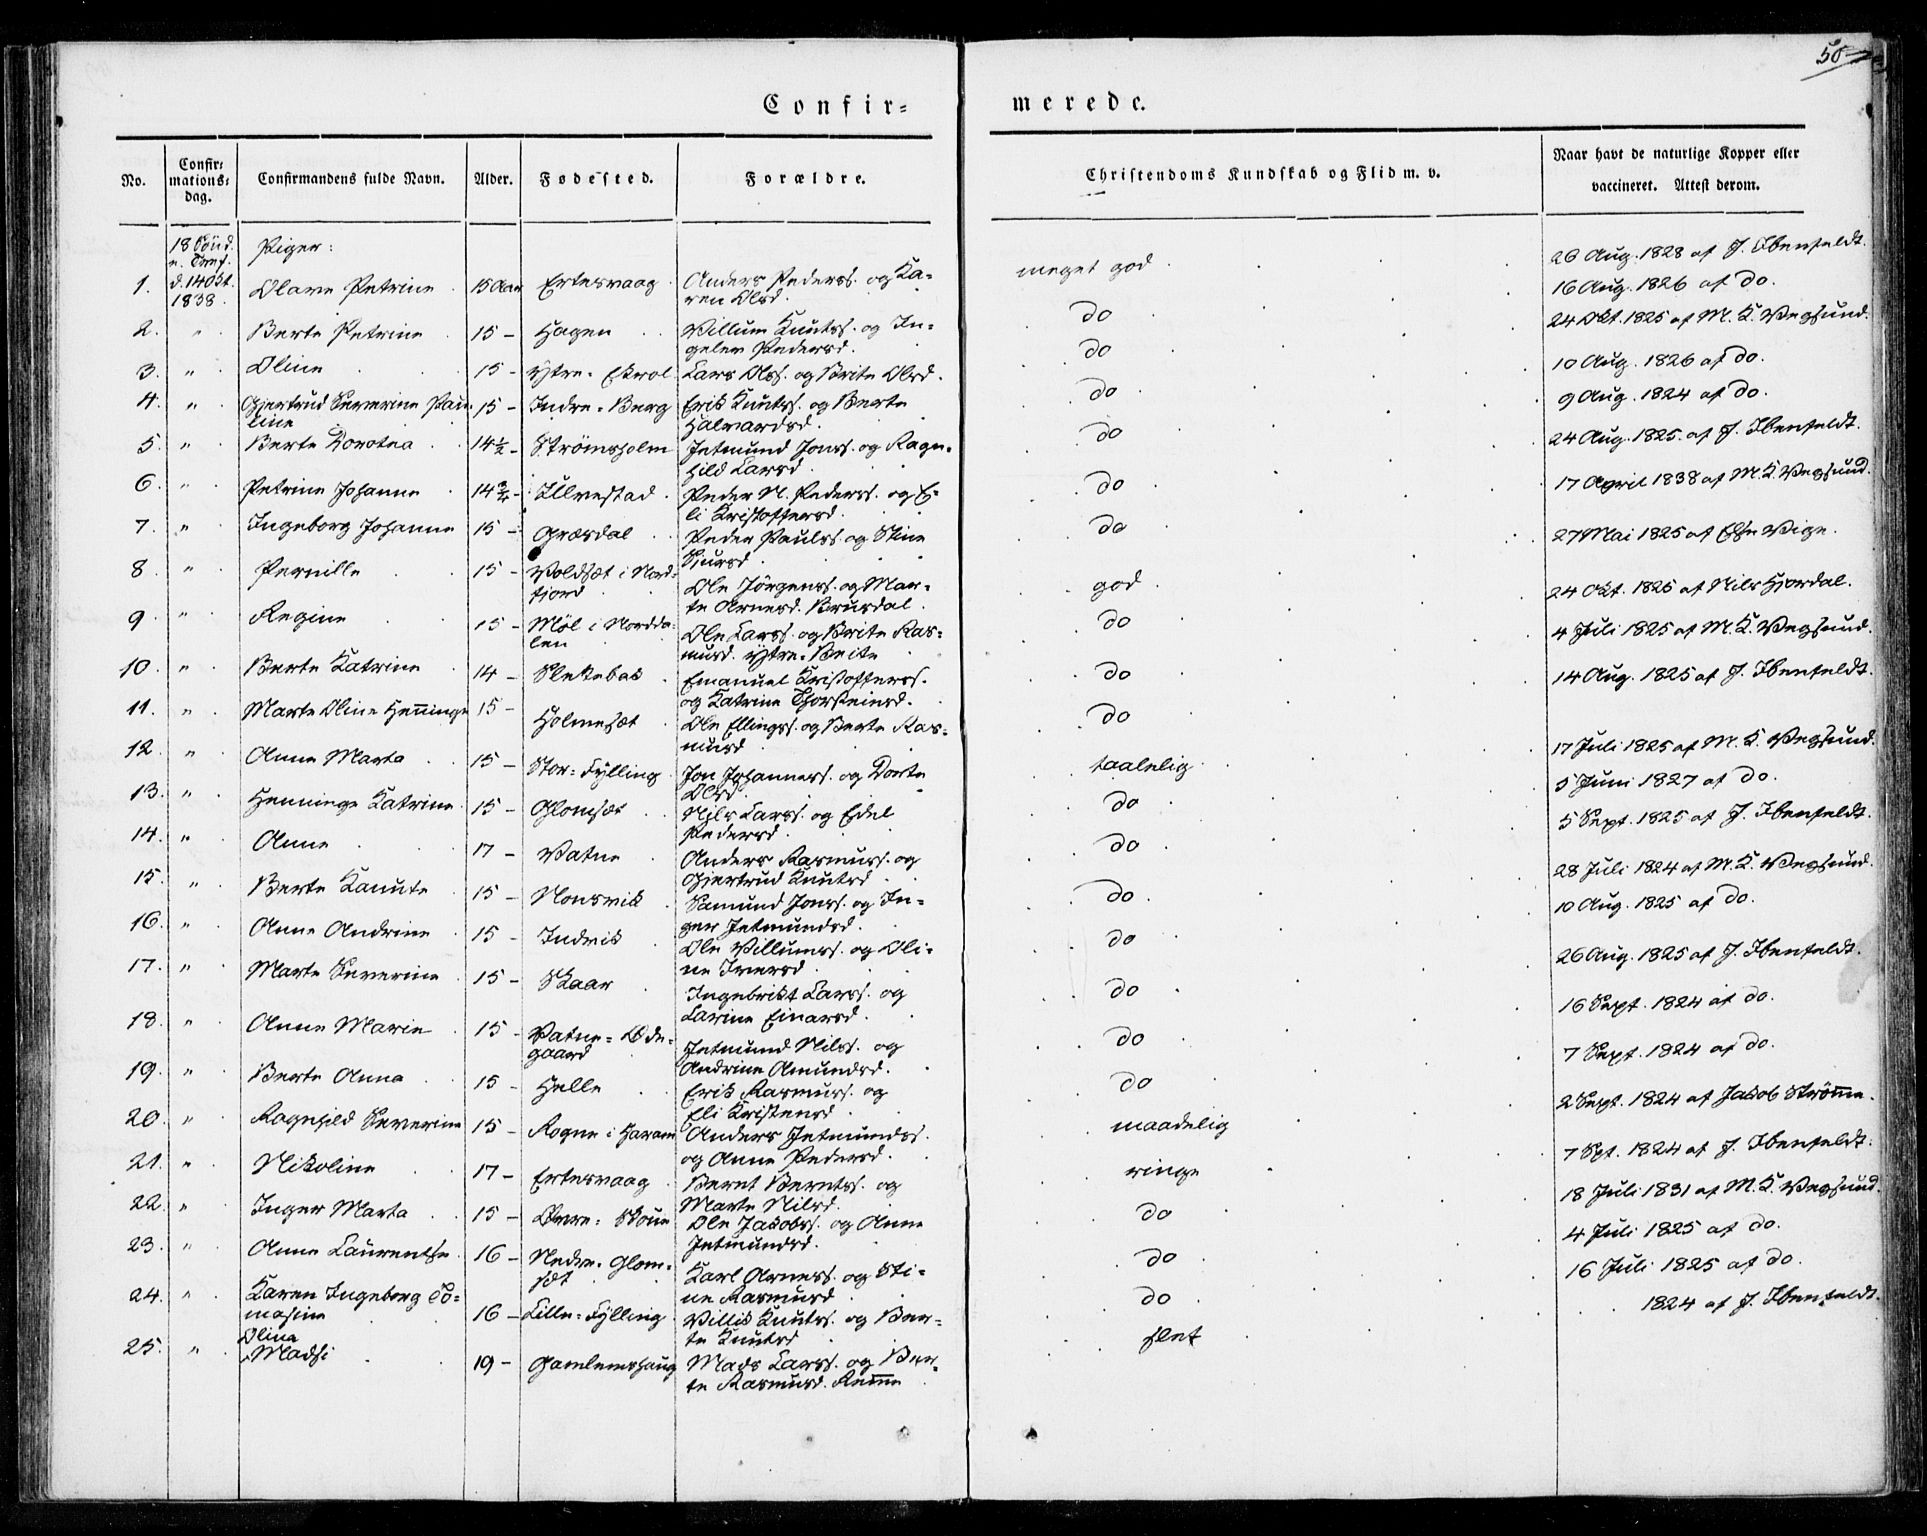 50
Confir=
merede.
No.
Confir=
mations=
dag.
Confirmandens fulde Navn.
Alder.
Fødested.
Forældre.
Christendoms Kundskab og Flid m. v.
Naar havt de naturlige Kopper eller
vaccineret. Attest derom.
18 Sönd.
e. Tref.
d. 14 Okt.
1838.
Piger:
1. Olave Petrine 15 Aar Ertesvaag Anders Peders. og Ka=
ren Olsd.
meget god
26 Aug. 1828 af J. Ibenfeldt.
2. " Berte Petrine 15 - Hagen Villum Knuts. og In=
gelev Pedersd.
do
16 Aug. 1826 af do.
3. " Oline 15 - Ytre=Skrol Lars Ols. og Brite Olsd.
do
24 Okt. 1825 af M. K. Vegsund.
4. " Gjertrud Severine Pau=
line 15 - Indre=Berg Erik Knuts. og Berte
Halvardsd.
do
10 Aug. 1826 af do.
5. " Berte Dorotea 14½ - Strömsholm Jetmund Jons. og Ragn=
hild Larsd.
do
9 Aug. 1824 af do.
6. " Petrine Johanne 14¾ - Ullvestad Peder N. Peders. og E=
li Kristoffersd.
do
24 Aug. 1825 af J. Ibenfeldt.
7. " Ingeborg Johanne 15 - Græsdal Peder Pauls. og Stine
Sjursd.
do
17 April 1838 af M. K. Vegsund.
8. " Pernille 15 - Voldsæt i Nord=
fjord Ole Jörgens. og Mar=
te Arnesd. Brusdal.
god
27 Mai 1825 af Else Vige.
9. " Regine 15 - Møl i Nordda=
len Ole Larss. og Brite Ras=
musd. Ytre=Beite
do
24 Okt. 1825 af Nils Hjordal.
10. " Berte Katrine 14 - Slekebak Emanuel Kristoffers.
og Katrine Thorsteinsd.
do
4 Juli 1825 af M. K. Vegsund.
11. " Marte Oline Henninge 15 - Holmesæt Ole Ellings. og Berte Ras=
musd.
do
14 Aug. 1825 af J. Ibenfeldt.
12. " Anne Marta 15 - Stor=Fylling Jon Johannes. og Dorte
Olsd.
taalelig
17 Juli 1825 af M. K. Vegsund.
13. " Henninge Katrine 15 - Glomsæt Nils Larss. og Edel
Pedersd.
do
5 Juni 1827 af do.
14. " Anne 17 - Vatne Anders Rasmuss. og
Gjertrud Knutsd.
do
5 Sept. 1825 af J. Ibenfeldt.
15. " Berte Kanute 15 - Nonsvik Samund Jons. og In=
ger Jetmundsd.
do
28 Juli 1824 af M. K. Vegsund.
16. " Anne Andrine 15 - Indvik Ole Villums. og Oli=
ne Iversd.
do
10 Aug. 1825 af do.
17. " Marte Severine 15 - Skaar Ingebrikt Larss. og
Larine Einarsd.
do
26 Aug. 1825 af J. Ibenfeldt.
18. " Anne Marie 15 - Vatne=Øde=
gaard Jetmund Nils. og
Andrine Amundsd.
do
16 Sept. 1824 af do.
19. " Berte Anna 15 - Helle Erik Rasmuss. og
Eli Kristensd.
do
7 Sept. 1824 af do.
20. " Ragnhild Severine 15 - Rogne i Haram Anders Jetmunds.
og Anne Pedersd.
maadelig
2 Sept. 1824 af Jakob Strömme.
21. " Nikoline 17 - Ertesvaag Bernt Bernts. og
Marte Nilsd.
ringe
7 Spt. 1824 af J. Ibenfeldt.
22. " Inger Marta 15 - Øvre=Skoue Ole Jakobs. og Anne
Jetmundsd.
do
18 Juli 1831 af M. K. Vegsund.
23. " Anne Laurentse 16 - Nedre=Glom=
sæt Karl Arnes. og Sti=
ne Rasmusd.
do
4 Juli 1825 af do.
24. " Karen Ingeborg To=
masine 16 - Lille=Fylling Villik Knuts. og Ber=
te Knutsd.
do
16 Juli 1825 af do.
25. " Oline
Madsi 19 - Gamlemshaug Mads Larss. og Ber=
te Rasmusd. Remme
slet
1824 af J. Ibenfeldt.